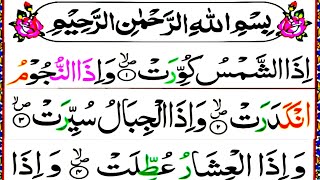 بِسْمِ اللهِ الرَّحْمٰنِ الرَّحِيْمِ
اِذَا الشَّمْسُ كُوِّرَتْ ۙ۝۱ وَاِذَا النُّجُوْمُ
انْكَدَرَتْ ۙ۝۲ وَاِذَا الْجِبَالُ سُيِّرَتْ ۙ۝۳
وَاِذَا الْعِشَارُ عُطِّلَتْ ۙ۝۴ وَاِذَا